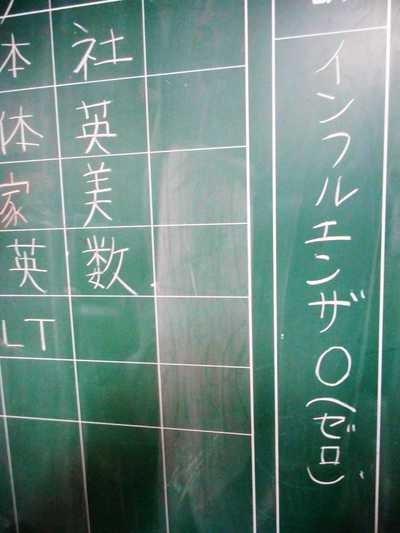 インフルエンザ〇(ゼロ)
社
英
美
数
体
家
英
LT